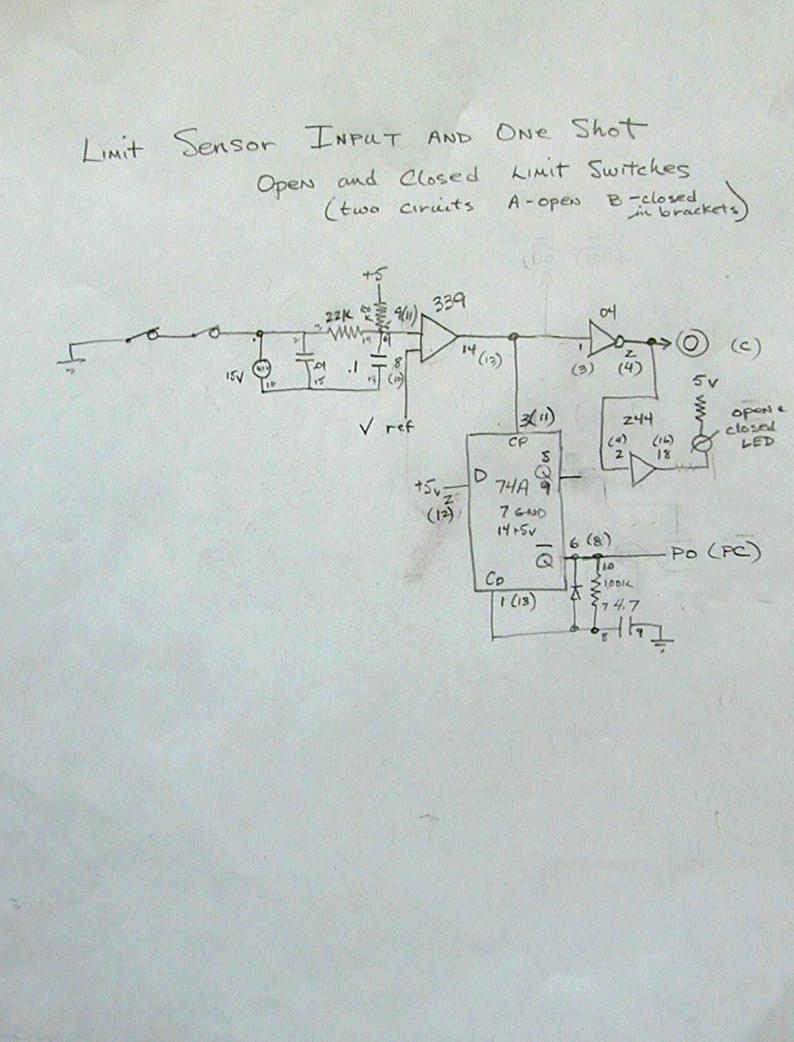 Limit Sensor INPUT AND One Shot
Open and Closed Limit Switches
(two circuits A-open B-closed in brackets)
+5
22K
100 K
9(11)
339
04
15V
.01
15
.1
8
(10)
14 (13)
1
(3)
2
(4)
O (C)
V ref
5V
244
(4)
2
(16)
18
open &
closed
LED
3(11)
CP
D
5
Q
9
+5v
2
(12)
74A
7 GND
14+5v
Q
6 (8)
PO (PC)
CD
1 (13)
10
100K
7
4.7
8
9